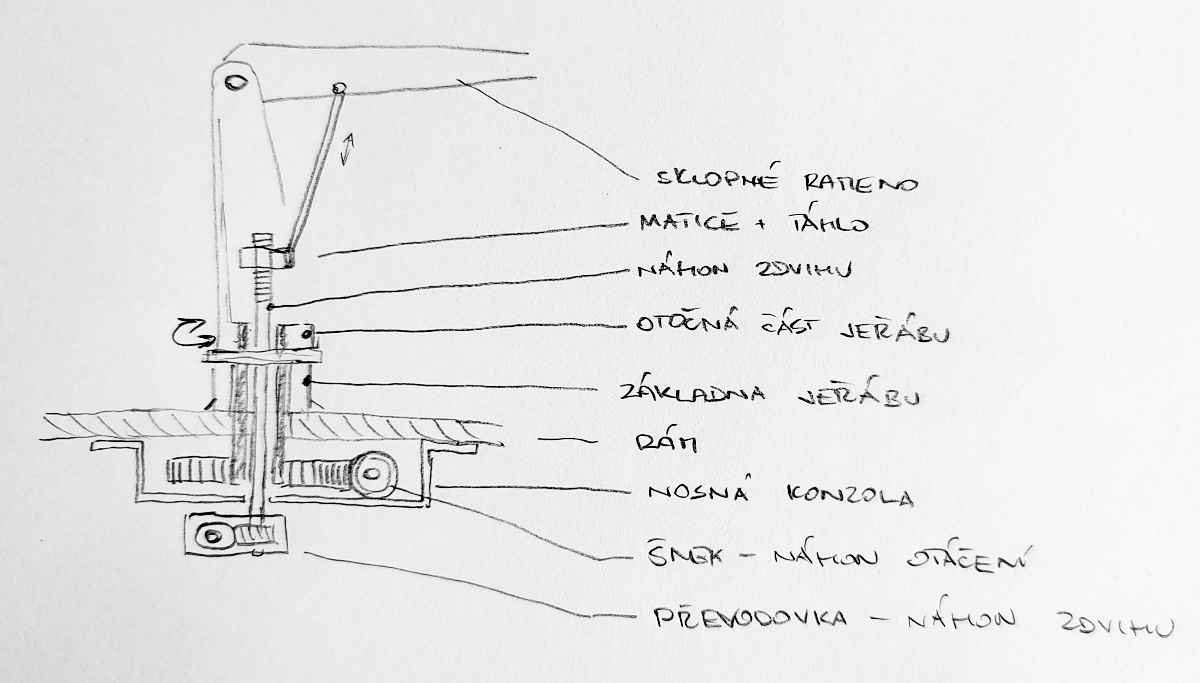 SKLOPNÉ RAMENO
MATICE + TÁHLO
NÁHON ZDVIHU
OTOČNÁ ČÁST JEŘÁBU
ZÁKLADNA JEŘÁBU
RÁM
NOSNÁ KONZOLA
ŠNEK - NÁHON OTÁČENÍ
PŘEVODOVKA - NÁHON ZDVIHU